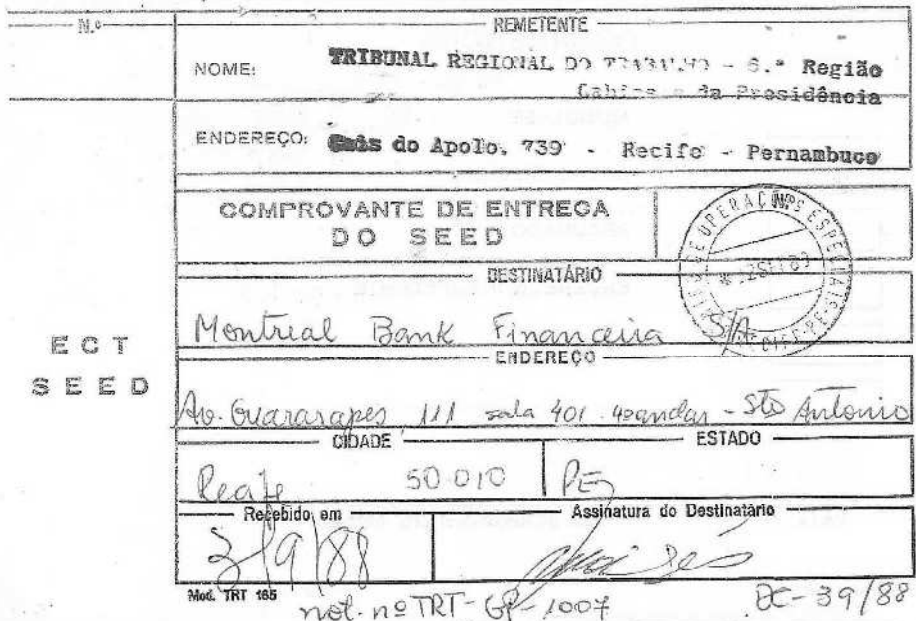 N.º
REMETENTE
NOME: TRIBUNAL REGIONAL DO TRABALHO - 6.ª Região
Gabinete da Presidência
ENDEREÇO: Cais do Apolo, 739 - Recife - Pernambuco
COMPROVANTE DE ENTREGA
DO SEED
Nº
DE OPERAÇÕES ESPECIAIS
SET
RECIFE-PE
DESTINATÁRIO
Montreal Bank Financeira S/A
ENDEREÇO
ECT
SEED
Av. Guararapes, 111 sala 401. 4º andar - Sto Antonio
CIDADE
ESTADO
Recife 50.010 PE
Recebido em
Assinatura do Destinatário
3/9/88
Mod. TRT 165
not. nº TRT-GP-1007
DC-39/88